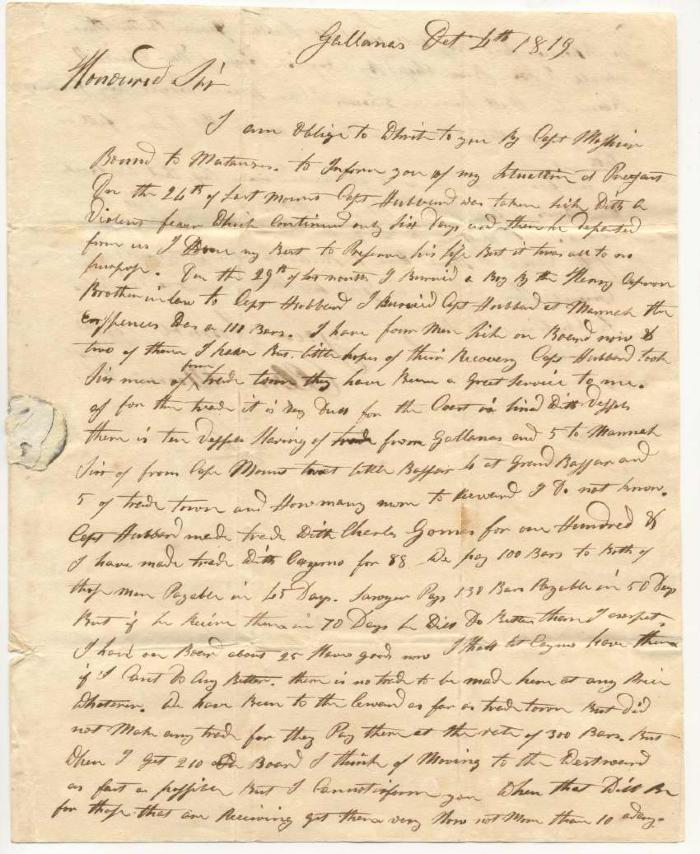 Gallanas Oct 4th 1819
Honoured Sir
I am oblige to Write to you By Capt
Bound to Matansas. to Inform you of my Situation at Present
On the 24th of Last Month Capt Hubbard was taken Sick With a
Violent fever Which Continued only Six Days and then he Departed
from us I Done my Best to Preserve his life But it was all to no
purpose. On the 29th of Last month I Burried a Boy By the Henry
Brother in law to Capt Hubbard I Burried Capt Hubbard at Mannah the
Expences Was a 111 Bars. I have four Men Sick on Board now &
two of them I have But little hopes of their Recovery Capt Hubbard took
Six men of from trade town they have Been a Great Service to me.
as for the trade it is Very Dull for the Coast is lind With Vessels
there is ten Vessels Slaving of from Gallanas and 5 to Mannah
Six of from Cape Mount little Bassar 4 at Grand Bassar and
5 of trade town and How many more to Leeward I Do not know.
Capt Hubbard made trade With Charles Gomes for one Hundred &
I have made trade With for 88 We pay 100 Bars to Both of
those men Payable in 45 Days. Sawyer Pays 130 Bars Payable in 50 Days
But if he Recive them in 70 Days he Will Do Better than I Exspect.
I have on Board about 25 Slaves good now I Shall let have them
if I Cant Do Any Better. there is no trade to be made here at any Price
Whatever. We have Been to the Leward as far as trade town But Did
not Make any trade for they Pay them at the rate of 300 Bars. But
When I get 210 on Board I think of Moving to the Westward
as fast as possible But I Cannot inform you When that Will Be
for those that are Reciving get them very Slow not More than 10 aday.